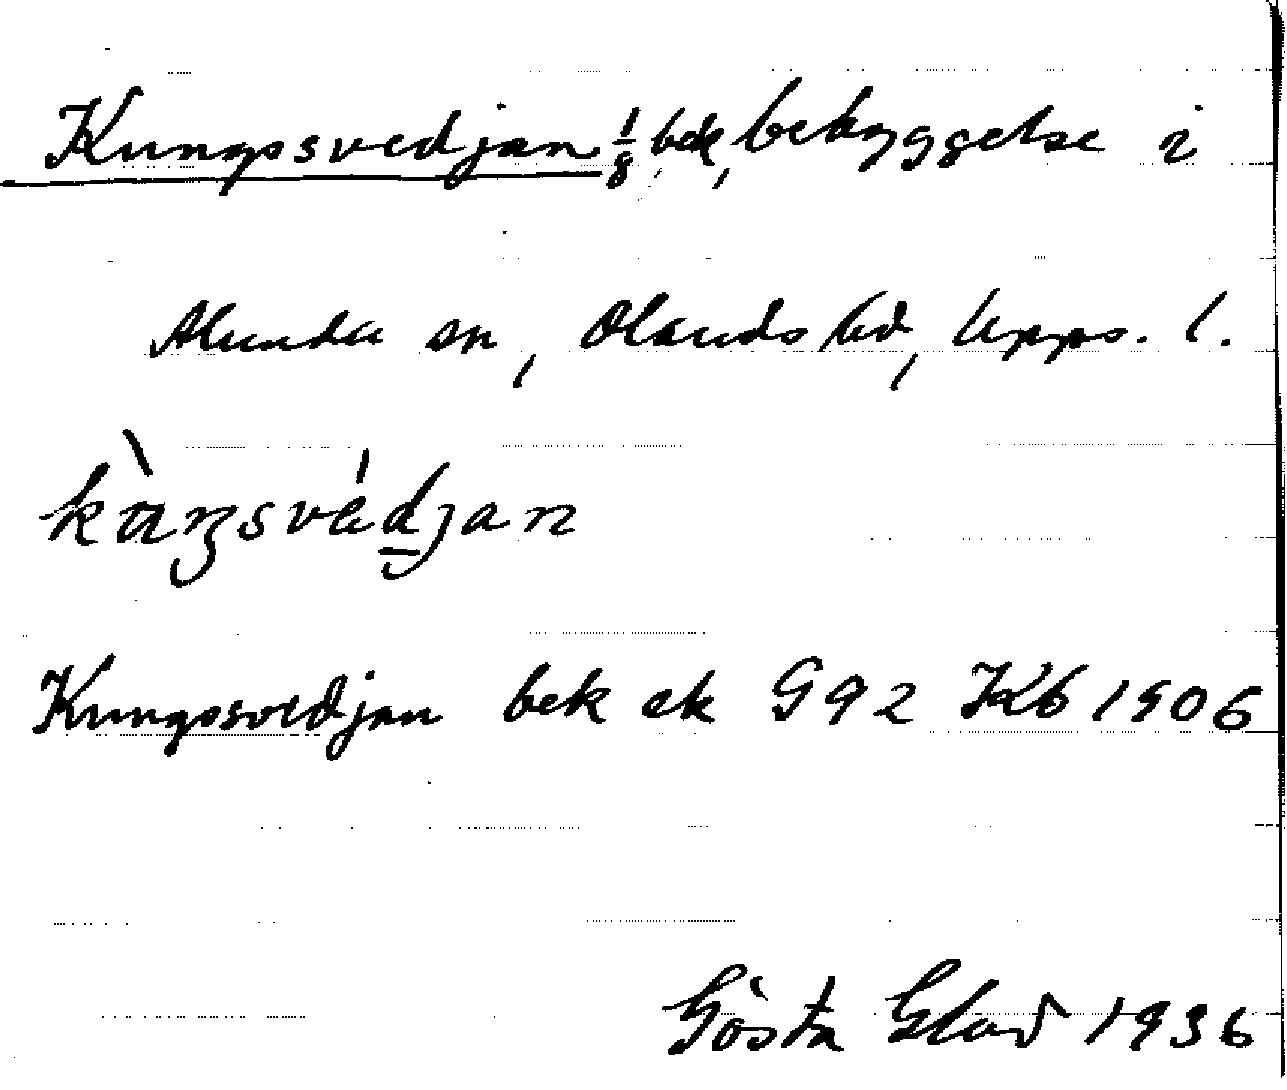 Kungssvedjan 1/8 bek, bebyggelse i
Alunda sn, Olands hd, Upps. l.
Kungssvedjan bek ek G92 Kb 1906
Gösta Glad 1936